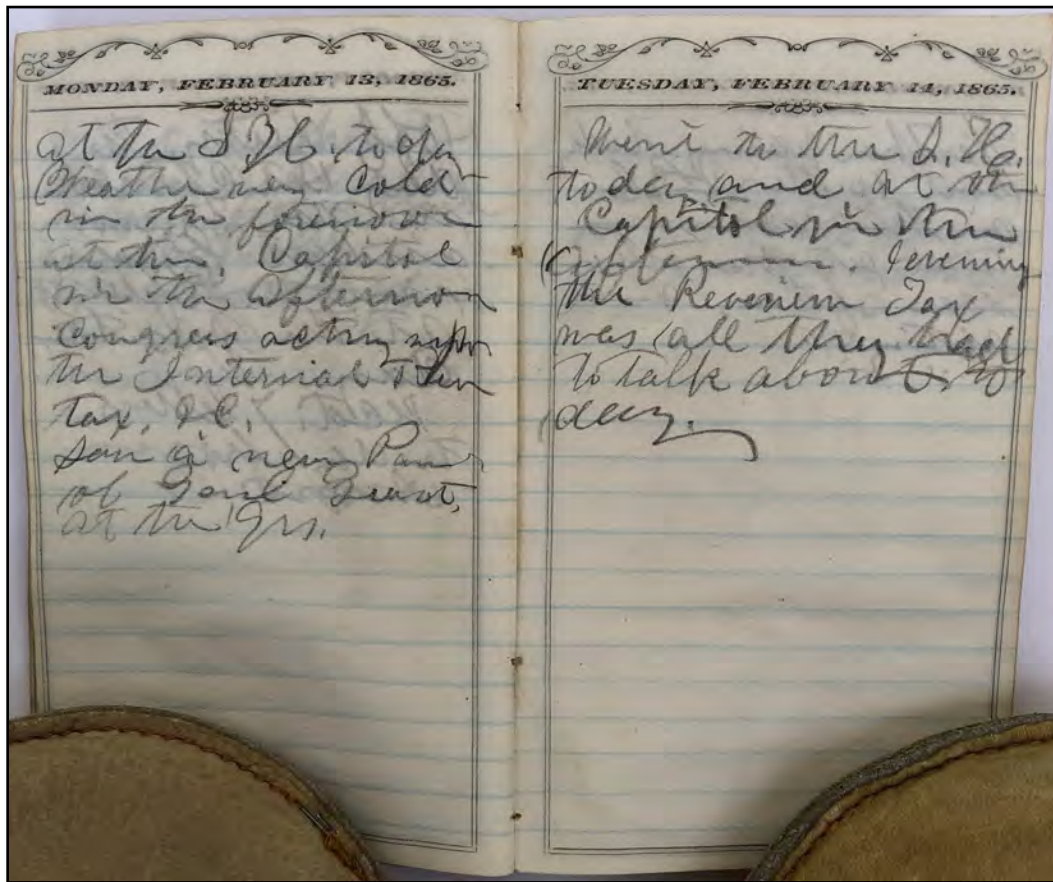 MONDAY, FEBRUARY 13, 1865.
at the S. H. to day
Weather very Cold
in the forenoon
at the, Capitol
in the afternoon
Congress acting upon
the Internal Reven
tax,
Saw a new
of
at the
TUESDAY, FEBRUARY 14, 1865.
Went to the S. H.
today and at the
Capitol in the
evening
the Revenien Tax
was all they had
to talk about to
day.